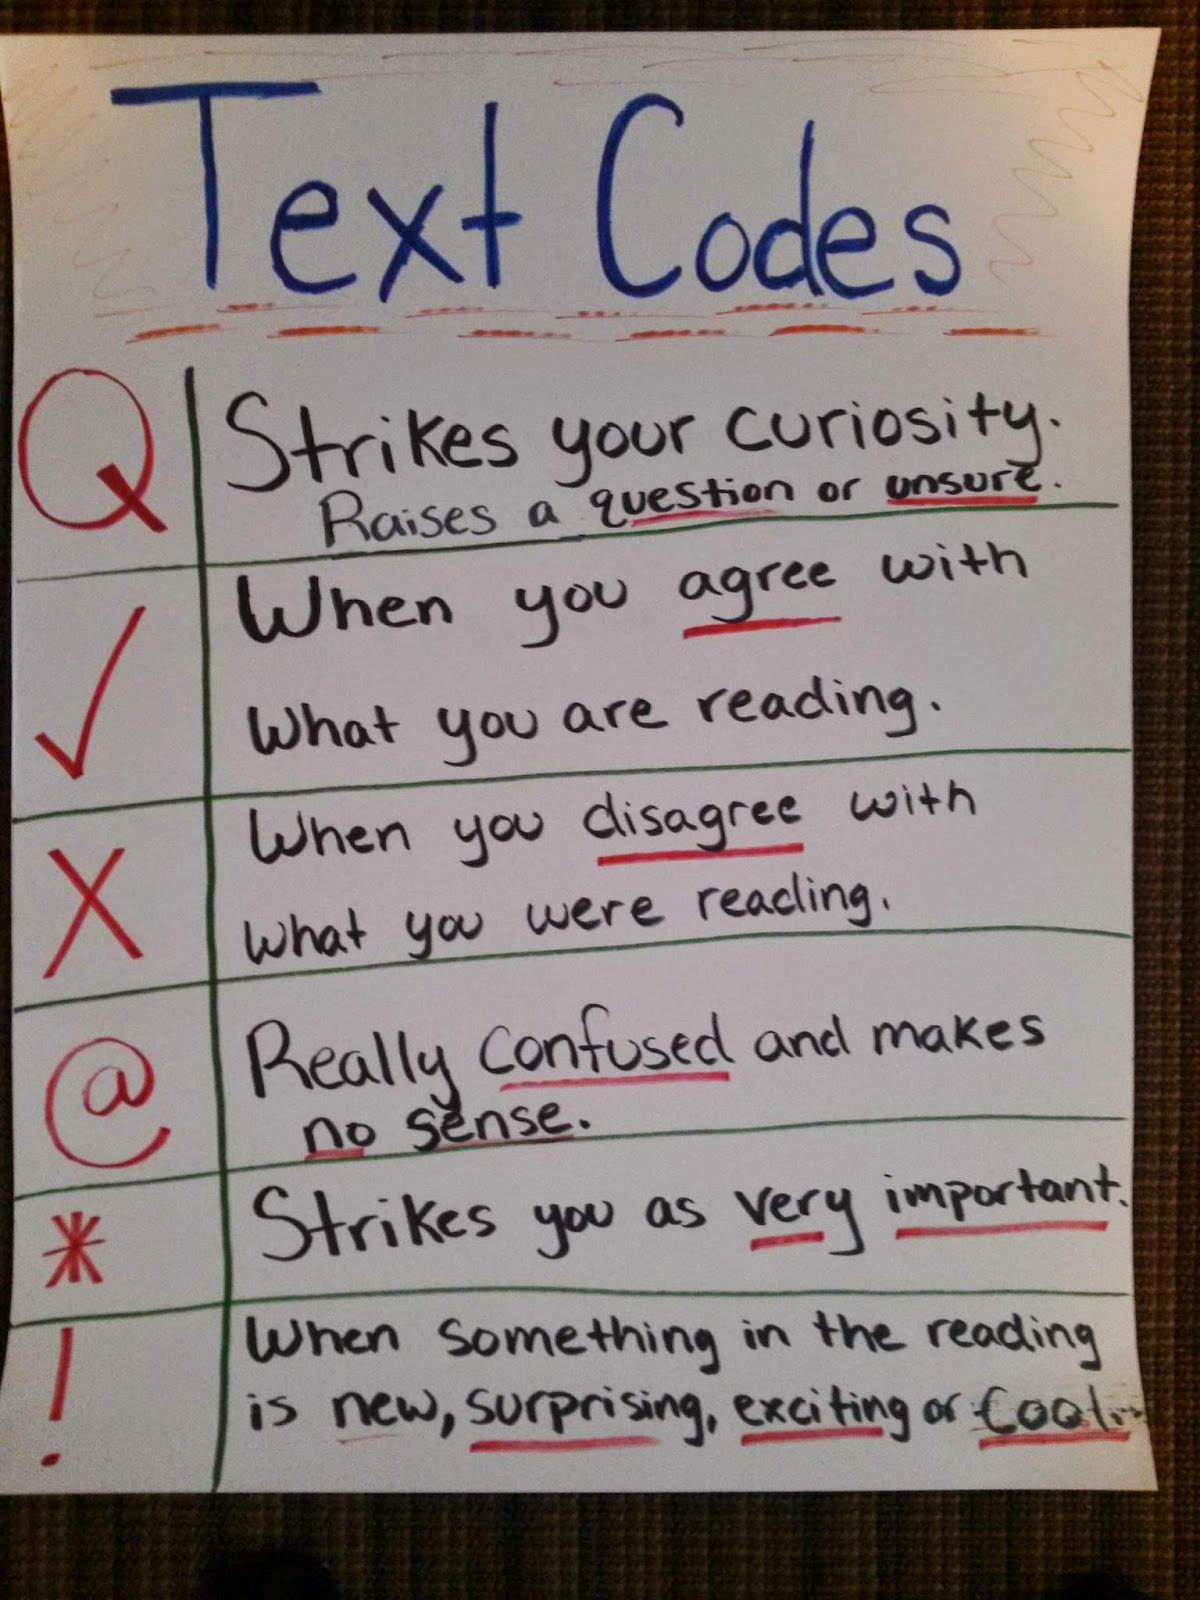 Text Codes
Q Strikes your curiosity.
Raises a question or unsure.
✓ When you agree with
What you are reading.
X When you disagree with
What you were reading.
@ Really confused and makes
no sense.
* Strikes you as very important.
! When something in the reading
is new, surprising, exciting or cool.